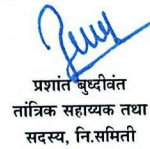 प्रशांत बुध्दीवंत
तांत्रिक सहाय्यक तथा
सदस्य, नि.समिती